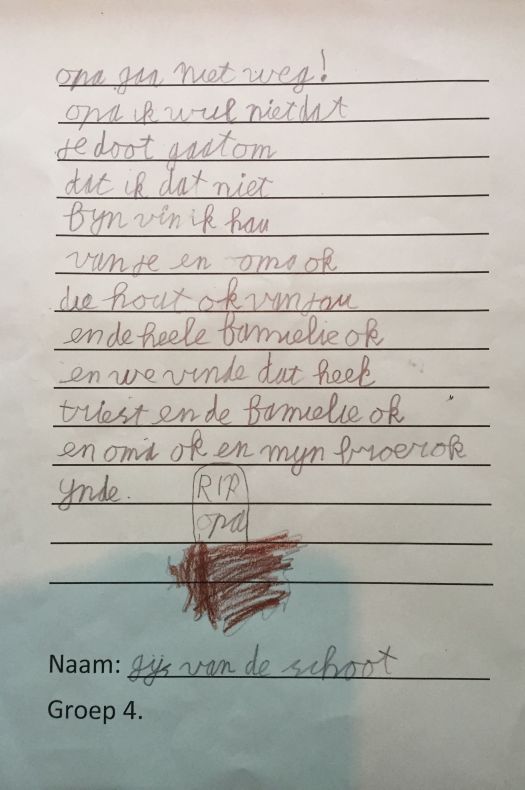 opa gaa niet weg!
opa ik wul niet dat
je doot gaat om
dat ik dat niet
fyn vin ik hau
van je en oma ok
die hout ok van jau
en de heele famielie ok
en we vinde dat heel
triest en de famielie ok
en oma ok en myn broer ok
ynde.
RIP
opa
Naam: gijs van de schoot
Groep 4.